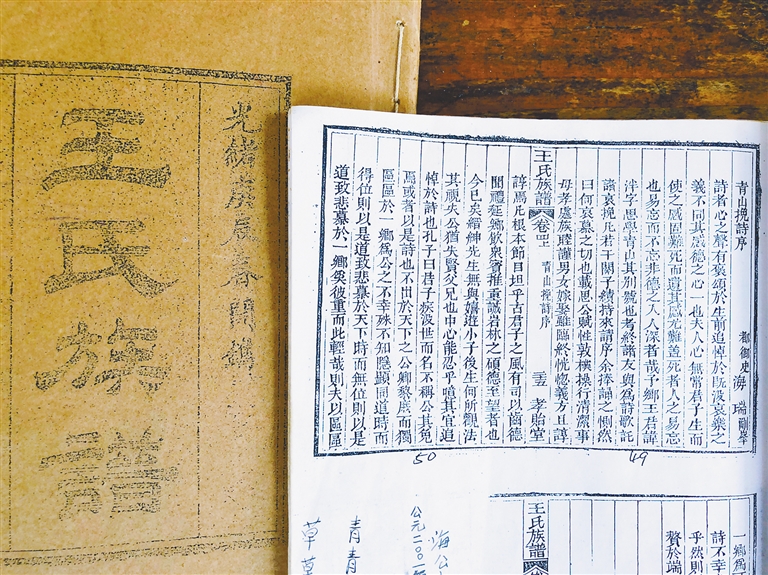 光緒庚辰春開鐫
王氏族譜
青山挽詩序
都御史海瑞剛峯
詩者心之聲有褒頌於生前追悼於既没哀樂之
義不同其感德之心一也夫人心無常君子生而
使之感固難死而遺其感尤難蓋死者人之易忘
也易忘而不忘非德之入人深者哉予鄉王君諱
泮字思學青山其別號也者終諸友與為詩歌託
哀挽君子續持來謂序余捧誦之惻然
曰何哀慕之切也載思公賦性敦樸操行清潔事
母孝處族睦謹男女嫁娶雖臨終恍惚義方且諄
王氏族譜
卷
青山挽詩序
孝貽堂
諄焉凡根本節目坦乎古君子之風有司以齒德
聞禮延鄉飲衆賓推重誠岩林之碩德至望者也
今已矣縉紳先生無與嬉遊小子後生何所觀法
其視失公猶失賢父兄也中心能忍乎噫其宜追
悼於詩也孔子曰君子疾没世而名不稱公其免
焉或者以是詩也不出於天下之公卿黎庶而獨
區區於一鄉為公之不幸殊不知隱顯同道時而
得位則以是道致悲慕於天下時而無位則以是
道致悲慕於一鄉奚彼重而此輕哉則夫以區區
49
50
一鄉為
詩不幸
乎然則
贅於端
王氏族譜
海公
公元二〇〇一年
青青
草草